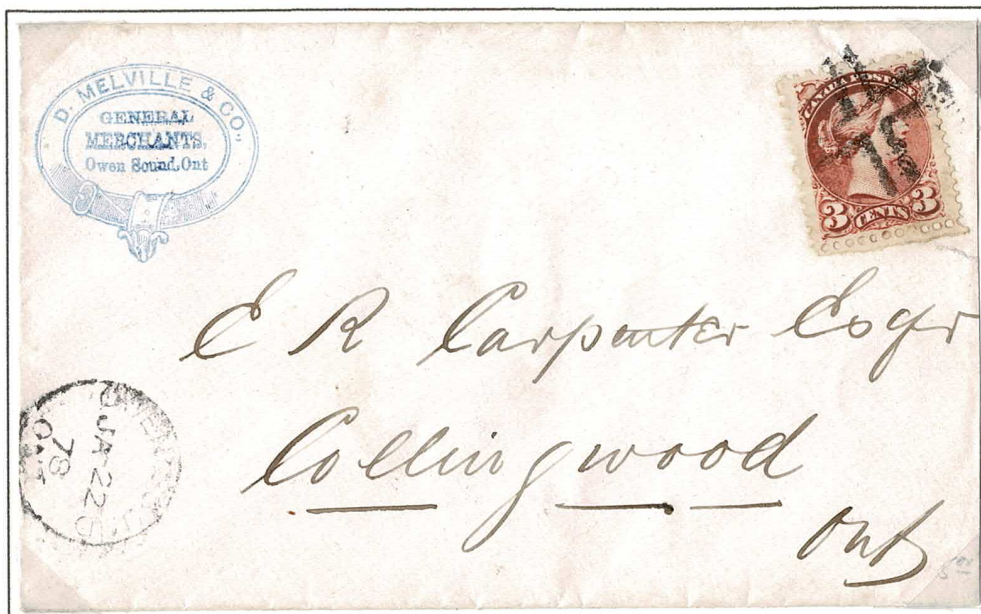 D. MELVILLE & CO.,
GENERAL
MERCHANTS,
Owen Sound, Ont
CANADA POSTAGE
3 CENTS 3
E R Carpenter Esqr
Collingwood
Ont
OWEN SOUND
JA 22
78
ONT